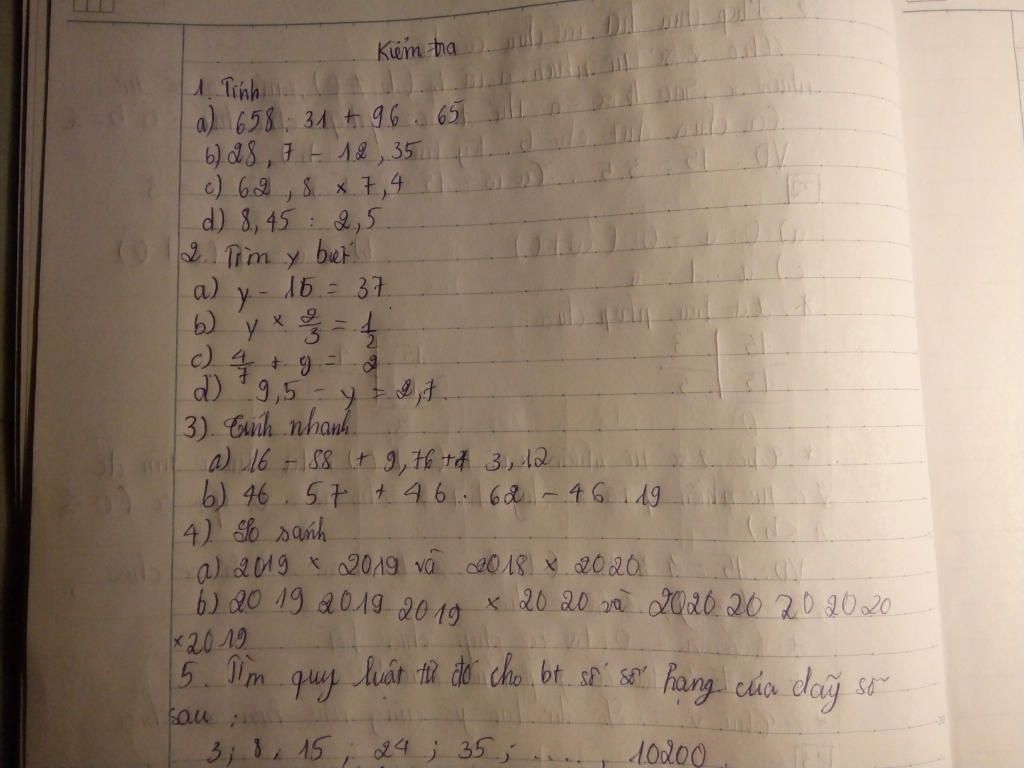 Kiểm tra
1. Tính
a) 658 : 31 + 96 . 65
b) 28,7 - 12,35
c) 62,8 × 7,4
d) 8,45 : 2,5
2. Tìm y biết
a) y - 15 = 37
b) y × 2/3 = 1/2
c) 4/7 + y = 2
d) 9,5 - y = 2,7.
3) Tính nhanh
a) 16 - 88 + 9,76 + 3,12
b) 46 . 57 + 46 . 62 - 46 . 19
4) So sánh
a) 2019 × 2019 và 2018 × 2020
b) 20 19 2019 2019 × 20 20 và 2020 20 20 2020
×2019
5. Tìm quy luật từ đó cho bt số số hạng của dãy số
sau :
3; 8; 15; 24; 35; ....., 10200